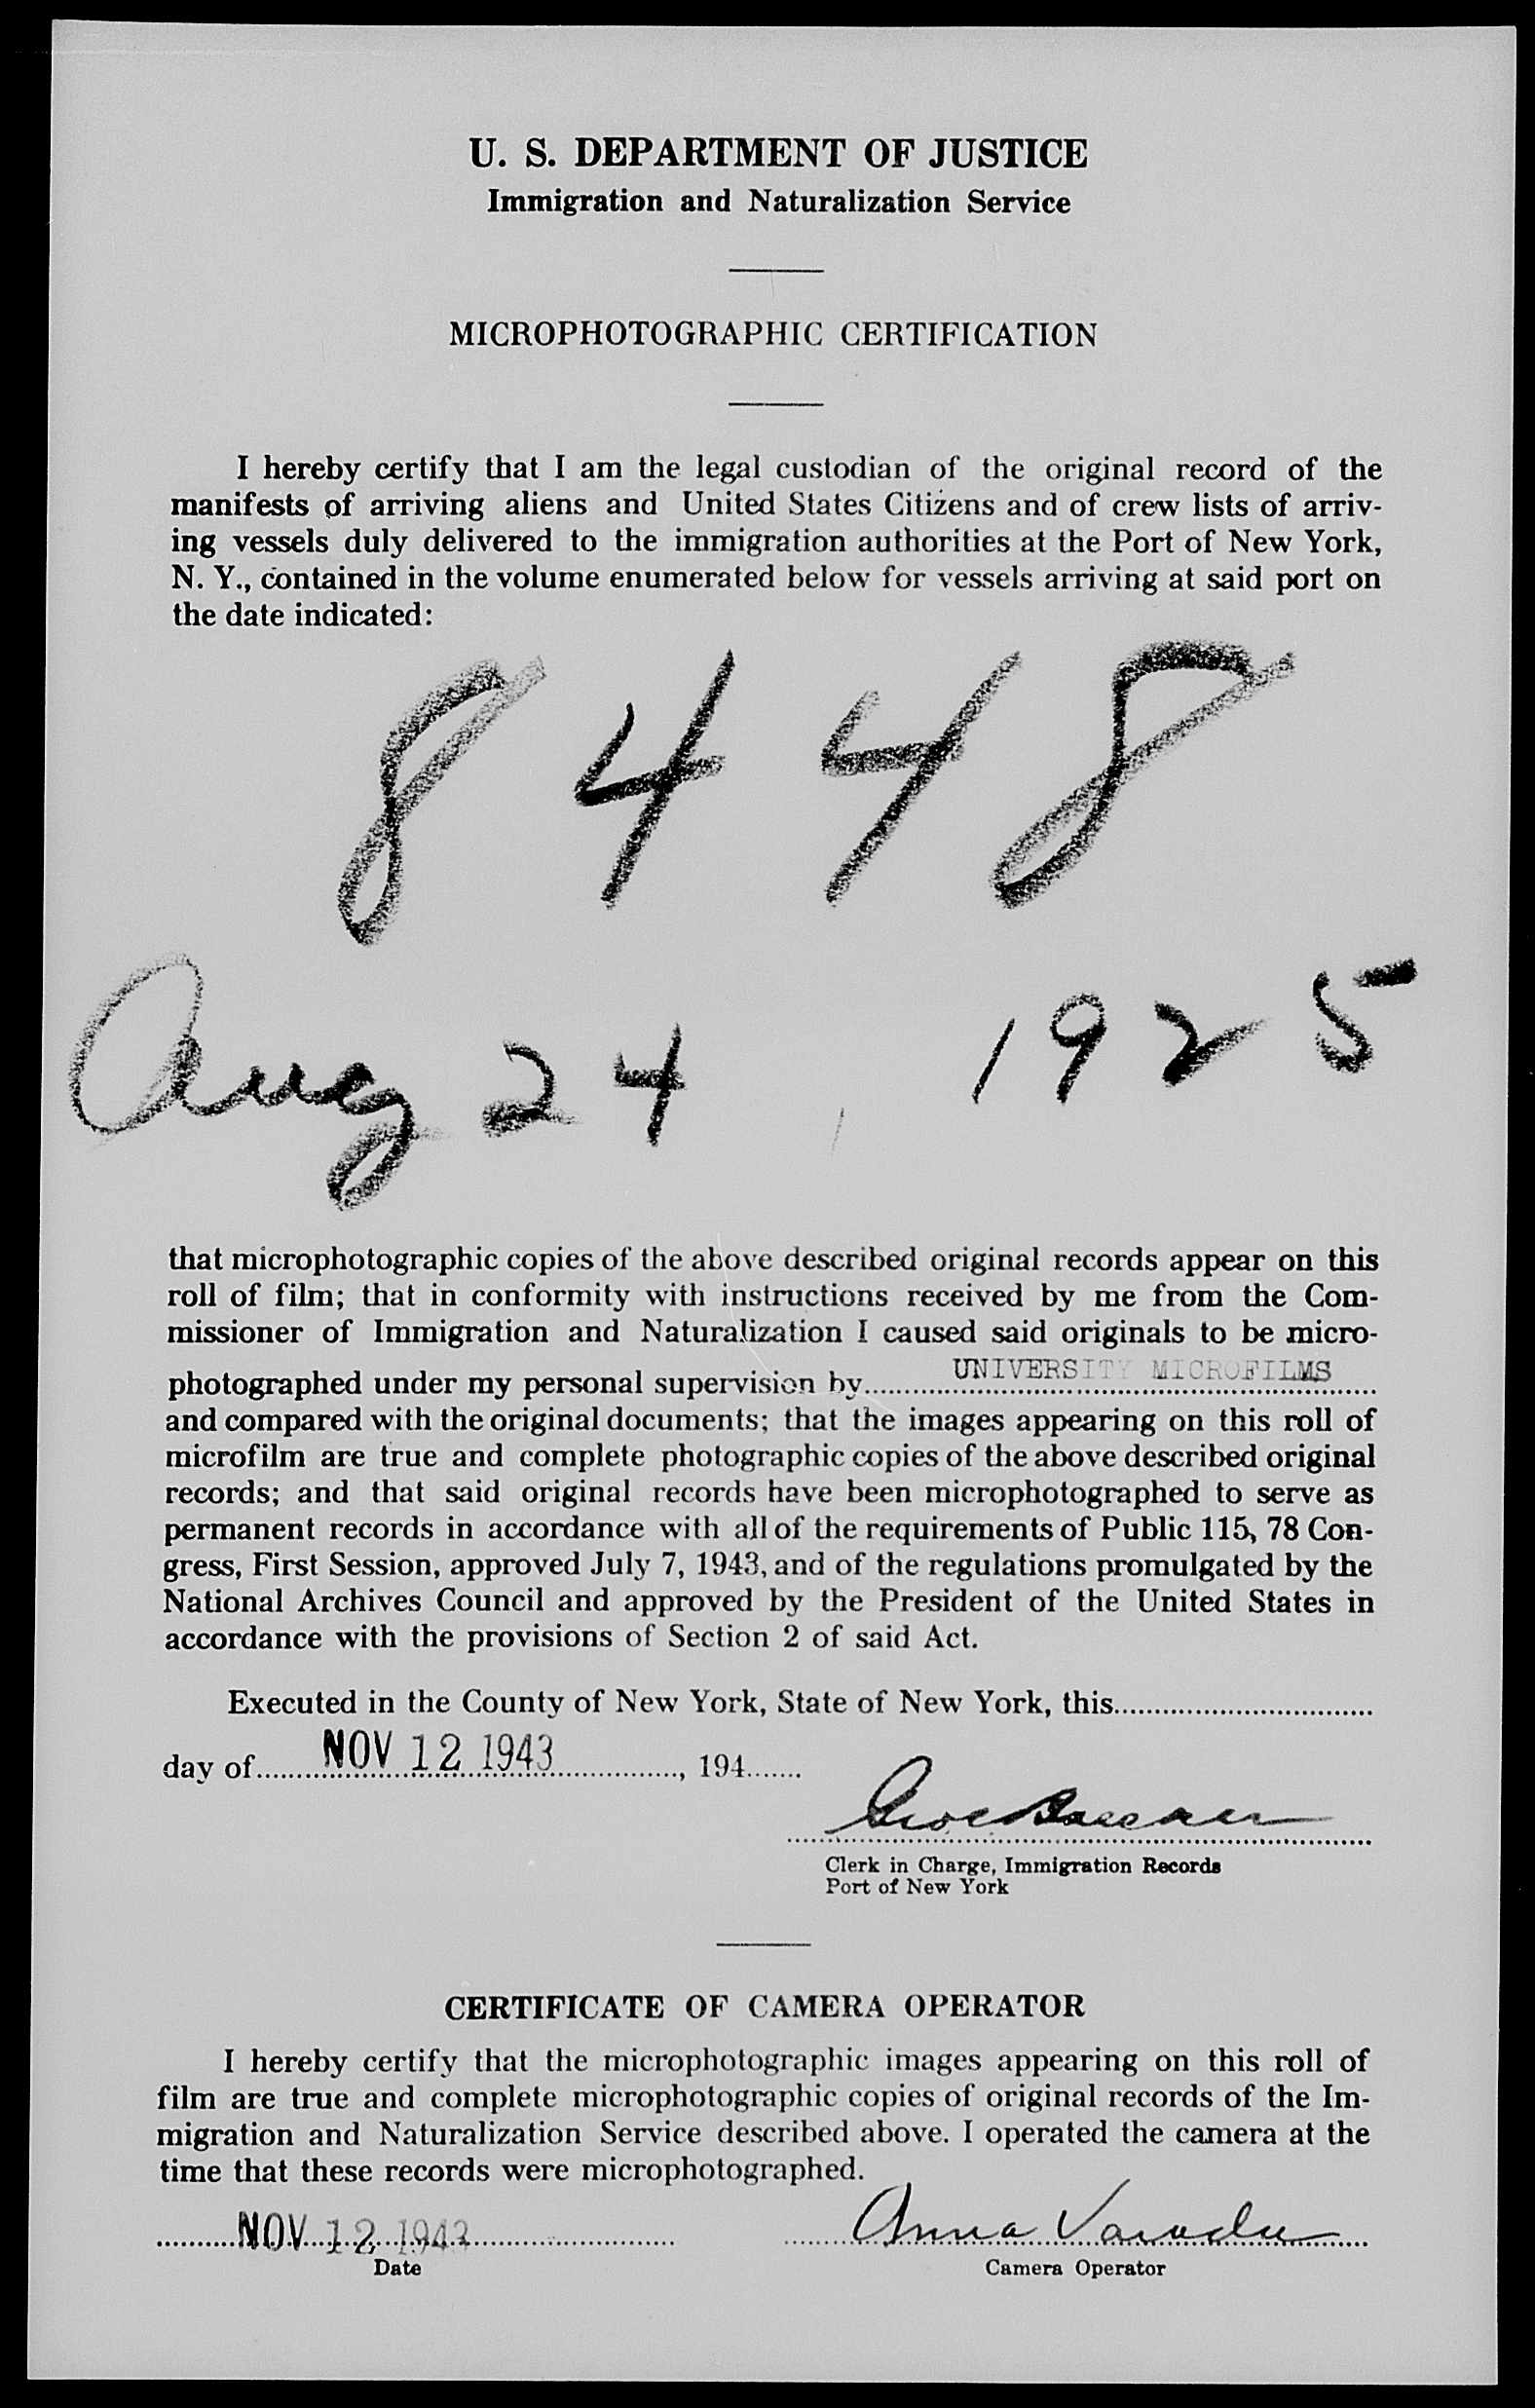 U. S. DEPARTMENT OF JUSTICE
Immigration and Naturalization Service
MICROPHOTOGRAPHIC CERTIFICATION
I hereby certify that I am the legal custodian of the original record of the
manifests of arriving aliens and United States Citizens and of crew lists of arriv-
ing vessels duly delivered to the immigration authorities at the Port of New York,
N. Y., contained in the volume enumerated below for vessels arriving at said port on
the date indicated:
8448
Aug 24, 1925
that microphotographic copies of the above described original records appear on this
roll of film; that in conformity with instructions received by me from the Com-
missioner of Immigration and Naturalization I caused said originals to be micro-
photographed under my personal supervision by UNIVERSITY MICROFILMS
and compared with the original documents; that the images appearing on this roll of
microfilm are true and complete photographic copies of the above described original
records; and that said original records have been microphotographed to serve as
permanent records in accordance with all of the requirements of Public 115, 78 Con-
gress, First Session, approved July 7, 1943, and of the regulations promulgated by the
National Archives Council and approved by the President of the United States in
accordance with the provisions of Section 2 of said Act.
Executed in the County of New York, State of New York, this
day of NOV 12 1943, 194
Clerk in Charge, Immigration Records
Port of New York
CERTIFICATE OF CAMERA OPERATOR
I hereby certify that the microphotographic images appearing on this roll of
film are true and complete microphotographic copies of original records of the Im-
migration and Naturalization Service described above. I operated the camera at the
time that these records were microphotographed.
NOV 12 1943 Anna
Date Camera Operator